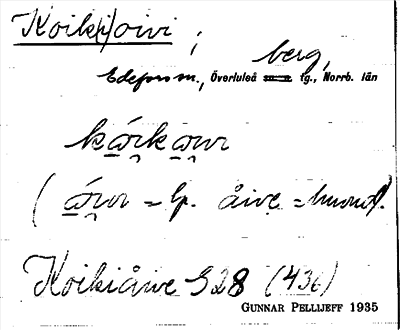 Koik(i)oivi ;
berg,
Edefors sn., Överluleå tg., Norrb. län
(= lp. åive = huvud).
Koikiåive S28 (436)
GUNNAR PELLIJEFF 1935